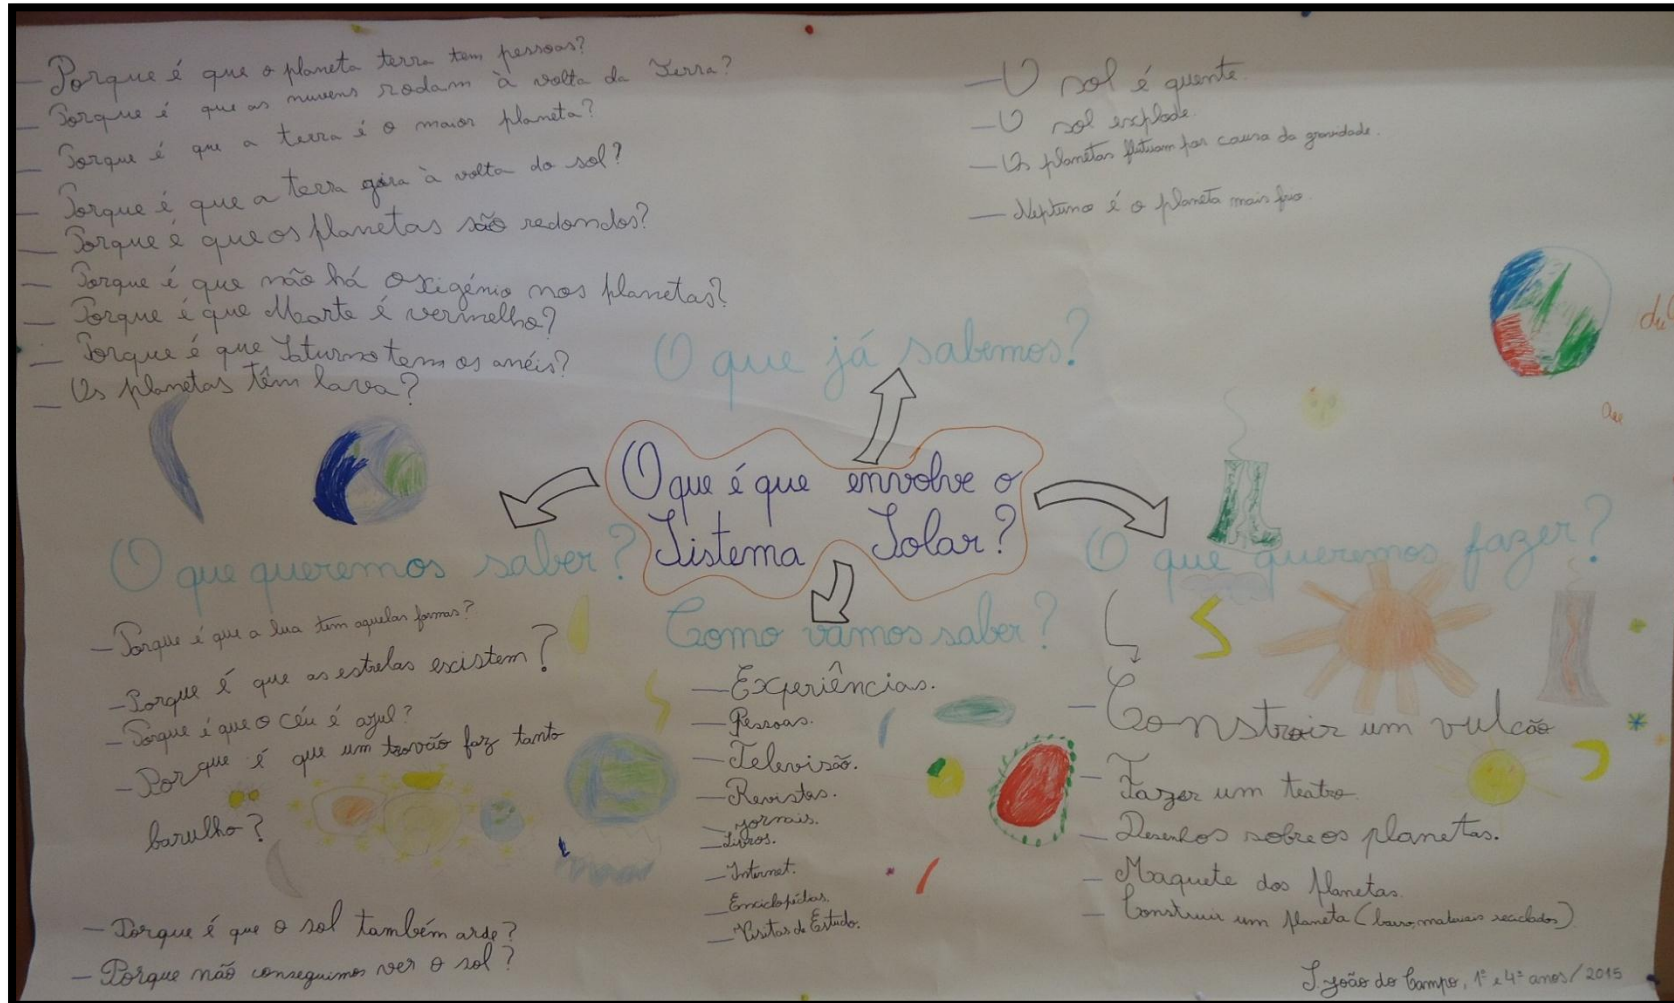 — Porque é que o planeta terra tem pessoas?
— Porque é que as nuvens rodam à volta da Terra?
— Porque é que a terra é o maior planeta?
— Porque é que a terra gira à volta do sol?
— Porque é que os planetas são redondos?
— Porque é que não há oxigénio nos planetas?
— Porque é que Marte é vermelho?
— Porque é que Saturno tem os anéis?
— Os planetas têm lava?
— O sol é quente.
— O sol explode.
— Os planetas flutuam por causa da gravidade.
— Neptuno é o planeta mais frio
O que já sabemos?
O que é que envolve o
Sistema Solar?
O que queremos saber?
— Porque é que a lua tem aquelas formas?
— Porque é que as estrelas existem?
— Porque é que o céu é azul?
— Porque é que um trovão faz tanto
barulho?
— Porque é que o sol também arde?
— Porque não conseguimos ver o sol?
Como vamos saber?
— Experiências.
— Pessoas.
— Televisão.
— Revistas.
— Jornais.
— Livros.
— Internet.
— Enciclopédias.
— Visitas de Estudo.
O que queremos fazer?
— Construir um vulcão
— Fazer um teatro.
— Desenhos sobre os planetas.
— Maquete dos planetas.
— Construir um planeta (barro, materiais reciclados)
S. João do Campo, 1º e 4º anos / 2015